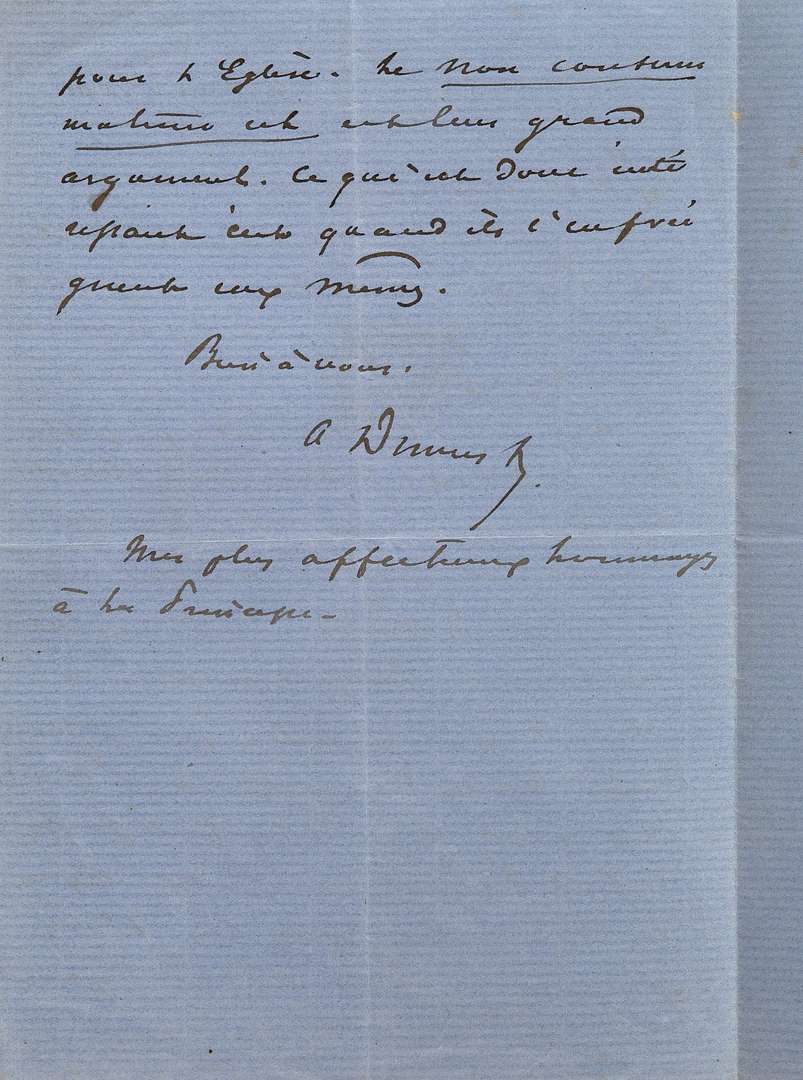 pour l'Eglise. Le non consum
matum est est leur grand
argument. Ce qui est donc inté
ressant c'est quand ils l'enfrei
gnent eux mêmes.
Bien à vous.
A Dumas f.
Mes plus affectueux hommages
à la Princesse.